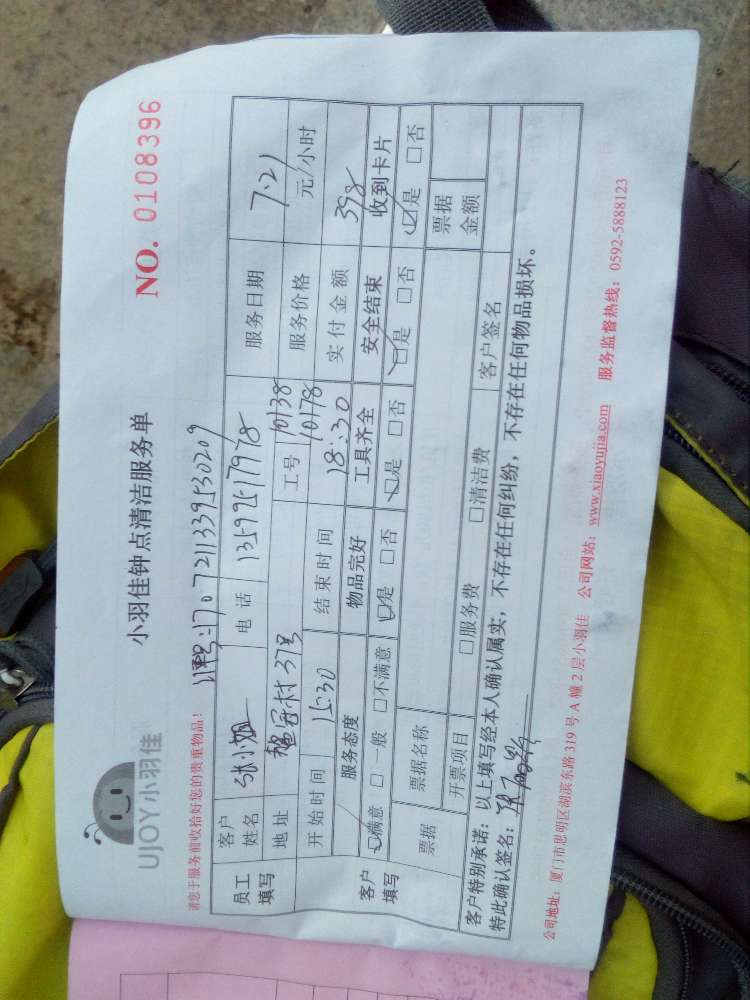 UJOY小羽佳
小羽佳钟点清洁服务单
NO. 0108396
请您于服务前收拾好您的贵重物品!
订单号:1707211339530209
员工填写
客户姓名 张小姐 电话 13592517978 服务日期 7.21
地址 村37号 工号 10138 10178 服务价格 元/小时
开始时间 15:30 结束时间 18:30 实付金额 398
客户填写
服务态度 物品完好 工具齐全 安全结束 收到卡片
☑满意 □一般 □不满意 ☑是 □否 ☑是 □否 ☑是 □否 ☑是 □否
票据 票据名称 票据金额
开票项目 □服务费 □清洁费 客户签名
客户特别承诺:以上填写经本人确认属实,不存在任何纠纷,不存在任何物品损坏。
特此确认签名:
公司地址:厦门市思明区湖滨东路 319 号 A 幢 2 层小羽佳 公司网站:www.xiaoyujia.com 服务监督热线:0592-5888123